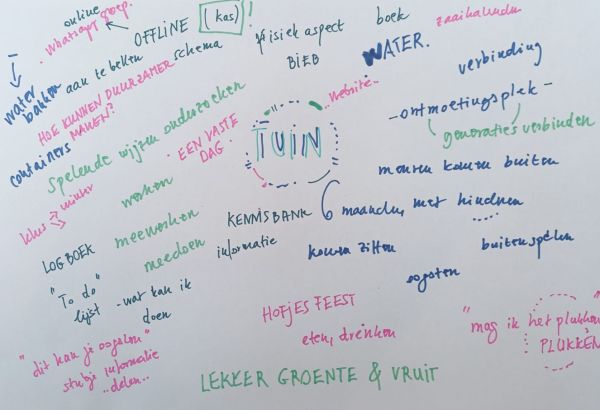 online
• Whatsapp groep.
OFFLINE
(kas)!
fysiek aspect
BIEB
boek
zaaikalender
WATER.
water
bakken
aan te bellen
schema
HOE KUNNEN DUURZAMER
MAKEN?
containers
Spelende wijzen onderzoeken
• EEN VASTE
DAG •
..website..
TUIN
verbinding
-ontmoetingsplek-
generaties verbinden
mensen komen buiten
klus
winter
werken
meewerken
meedoen
KENNISBANK
informatie
6 maanden, met kinderen
komen zitten
buitenspelen
oogsten
LOGBOEK
"To do"
lijst
-wat kan ik
doen
HOFJES FEEST
eten, drinken
"mag ik het plukken"
PLUKKEN
"dit kan je oogsten"
stukje informatie
..delen..
LEKKER GROENTE & VRUIT